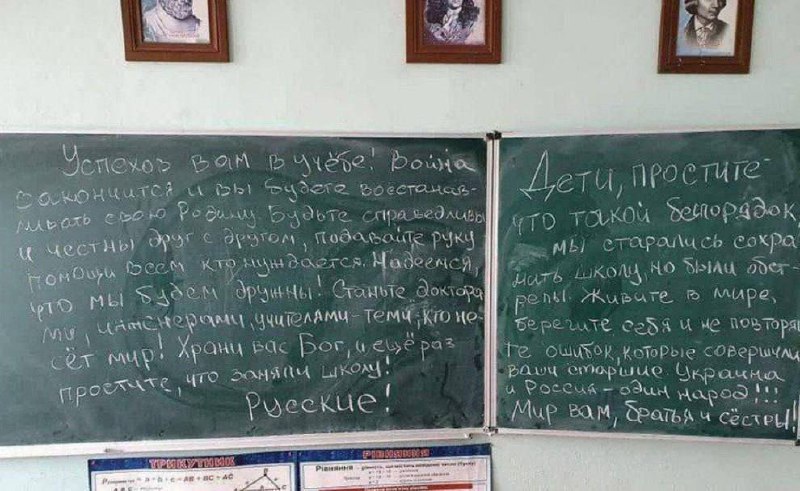 Успехов вам в учёбе! Война
закончится и вы будете восстанав-
ливать свою Родину. Будьте справедливы
и честны друг с другом, подавайте руку
помощи всем кто нуждается. Надеемся,
что мы будем дружны! Станьте доктора
ми, инженерами, учителями-теми, кто не-
сёт мир! Храни вас Бог, и ещё раз
простите, что заняли школу!
Русские!
Дети, простите-
что такой беспорядок,
мы старались сохра
нить школу, но были обст-
релы. Живите в мире,
берегите себя и не повторяй
те ошибок, которые совершили
ваши старшие Украина
и Россия-один народ!!!
Мир вам, братья и сёстры!
ТРИКУТНИК
Периметр = a + b + c = AB + BC + AC
РІВНЯННЯ
Рівняння